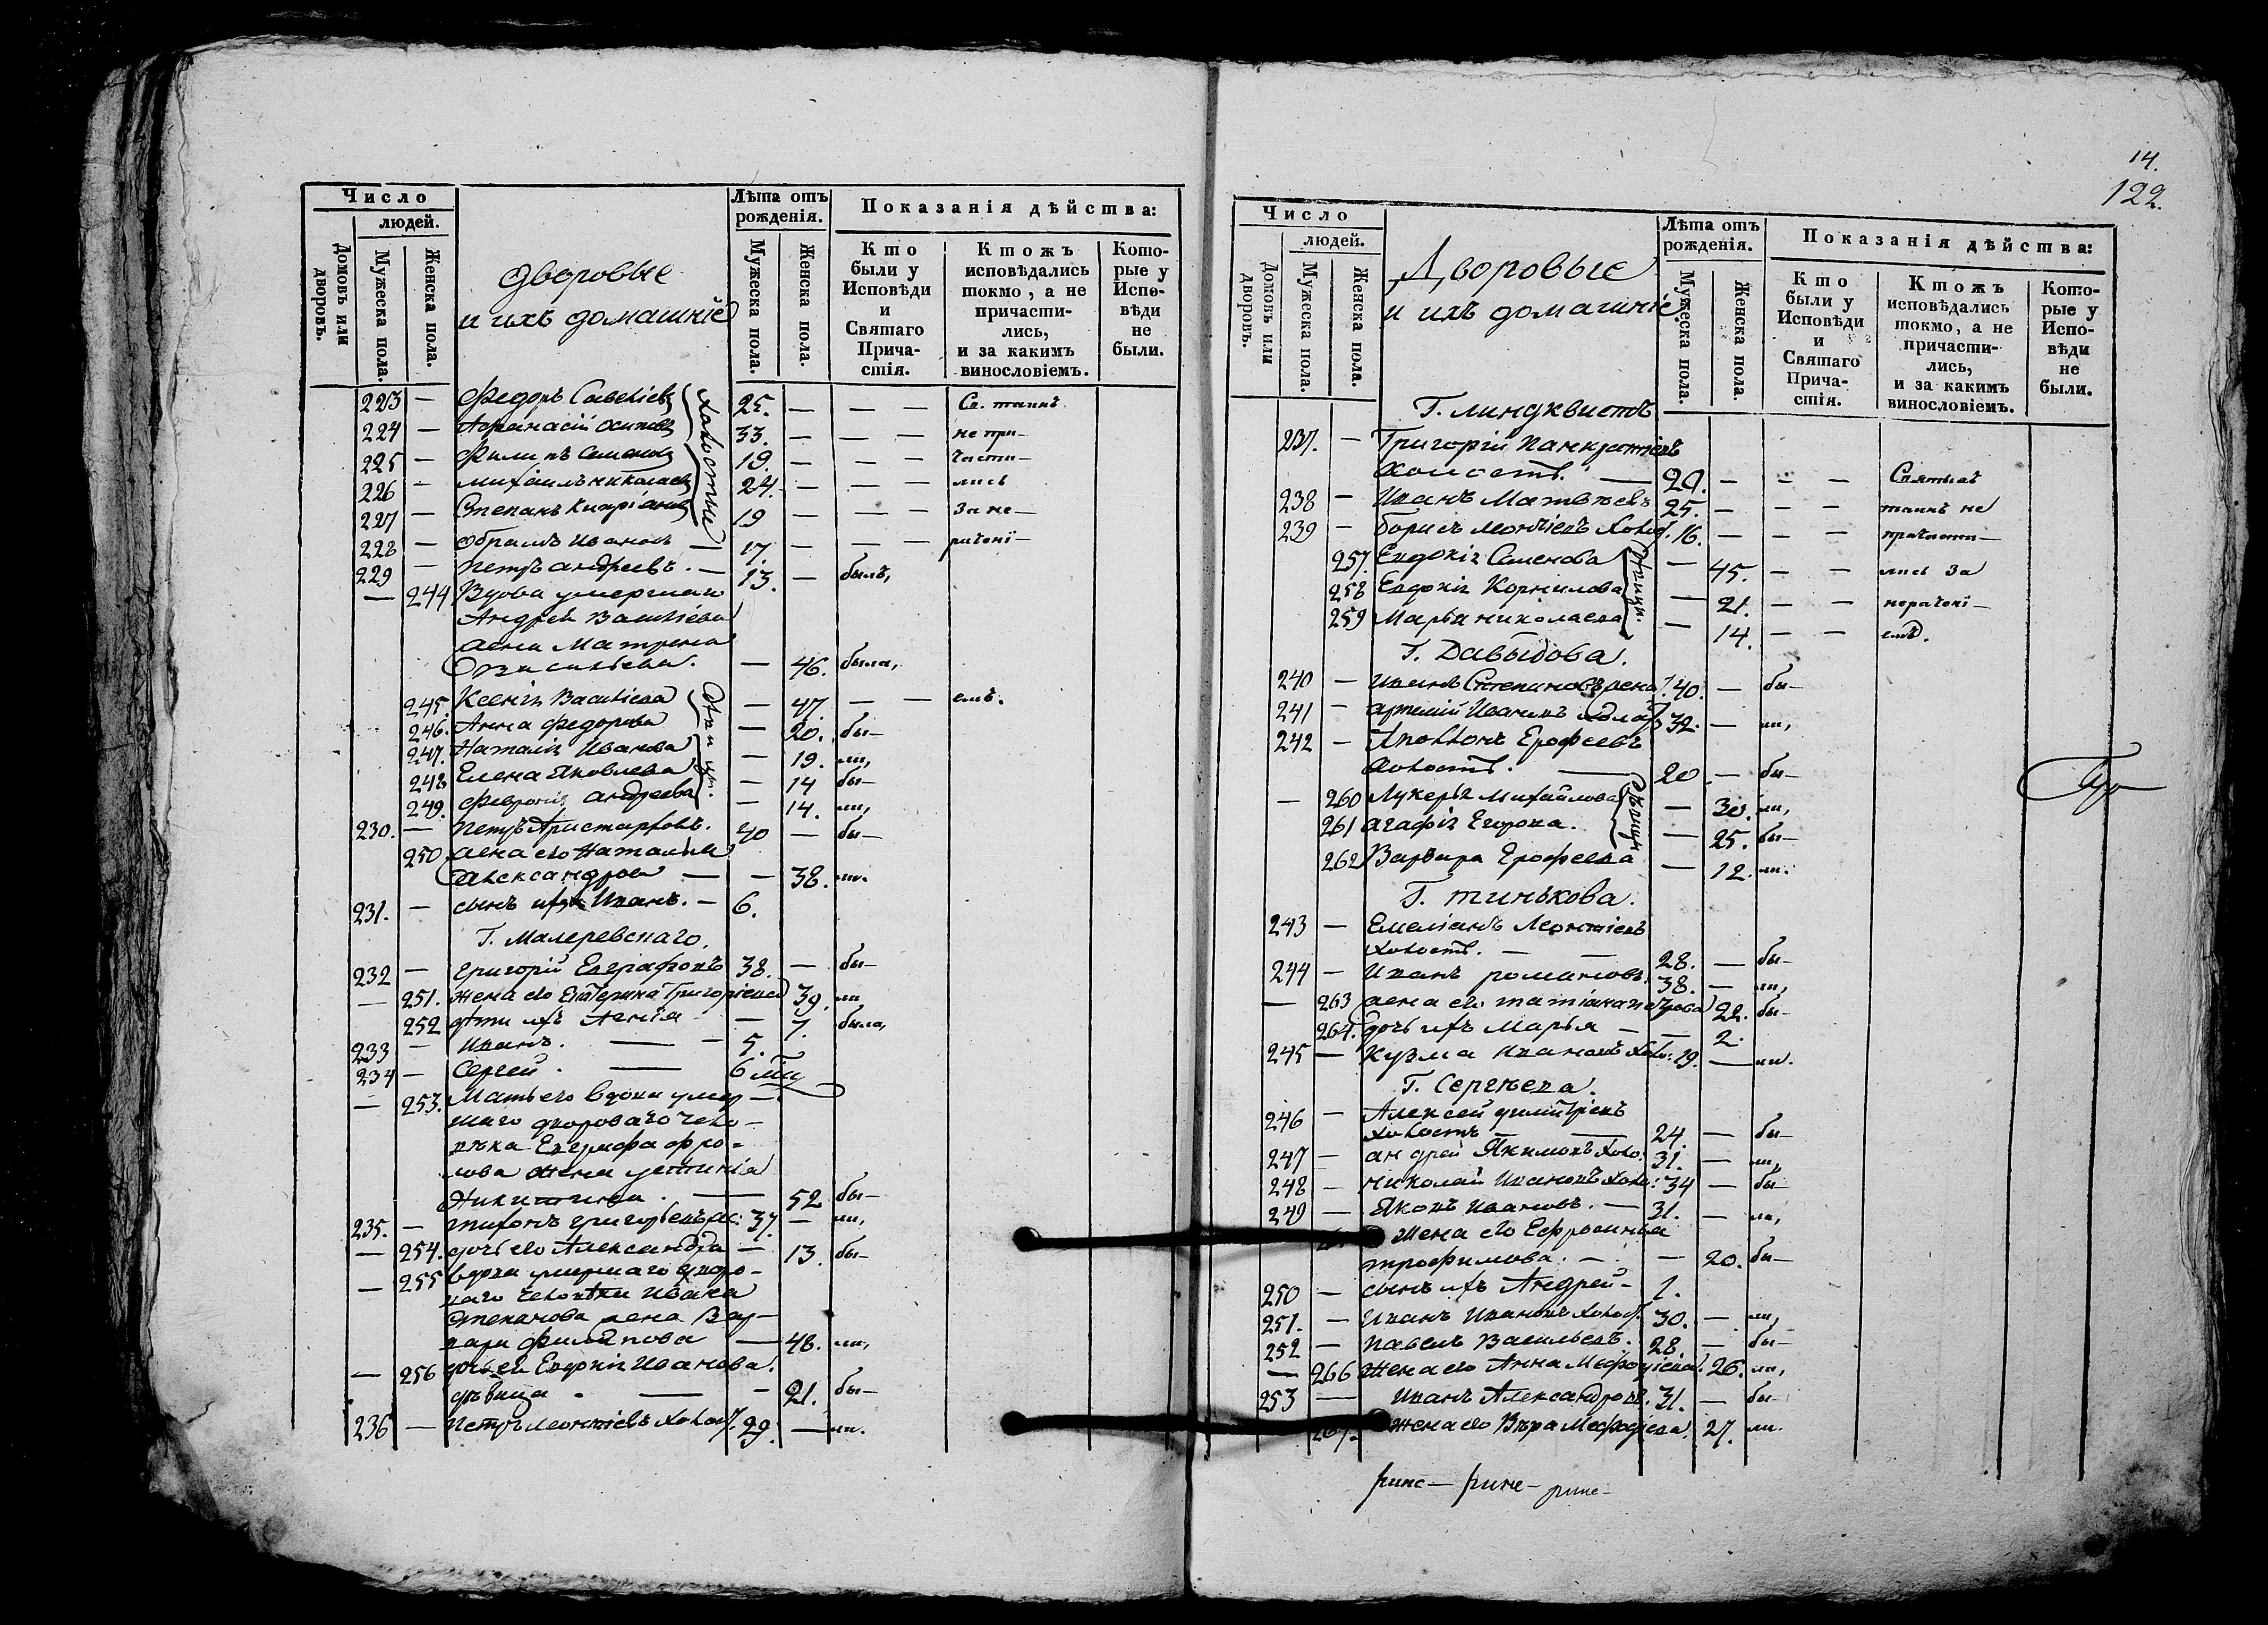 Число
людей.
Домовъ или дворовъ.
Мужеска пола.
Женска пола.
Дворовые
и ихъ домашніе
Лѣта отъ рожденія.
Мужеска пола.
Женска пола.
Показанія дѣйства:
Кто были у Исповѣди и Святаго Причастія.
Ктожъ исповѣдались токмо, а не причастились, и за какимъ винословіемъ.
Которые у Исповѣди не были.
223 — Федоръ Савельевъ 25. — — — Св. таинъ
224 — Афанасій Осиповъ 33. — — — не при—
225 — Филипъ Семеновъ 19. — — — части—
226 — Михаилъ Николаевъ 24. — — — лись
227 — Степанъ Кипріановъ 19 — — — за не—
холостые
228 — Абрамъ Ивановъ — 17. — — — рачені—
229 — Петръ Андреевъ. — 13. — былъ,
— 244 Вдова умершаго
Андрея Васильева
жена Матрена
Васильева. — 46. была,
245. Ксенія Васильева — 47 — — емъ.
246. Анна Федорова — 20. бы—
247. Наталія Иванова — 19. ли,
248 Елена Яковлева — 14 бы—
249. Февронія Андреева — 14. ли,
230. — Петръ Аристарховъ. 40 — бы—
250 жена его Наталья
Александрова — — 38. ли.
231. — сынъ ихъ Иванъ. — 6.
Г. Малеревскаго.
232 — Григорій Евграфовъ 38. — бы—
— 251. жена его Екатерина Григорьева 39. ли,
252 дѣти ихъ Агнія — 7. была,
233 — Иванъ. — — 5.
234 — Сергей. — 6
— 253. Мать его вдова умер—
шаго двороваго чело—
вѣка Евграфа Фро—
лова жена Устинія
Никитина. — 52 бы—
235. — Тихонъ Григорьевъ 37. — ли,
— 254. дочь его Александра — 13. бы—
— 255 вдова умершаго дворо—
ваго человѣка Ивана
Степанова жена Вар—
вара Филипова — 48. ли,
— 256 дочь ея Евдокія Иванова.
дѣвица. — — 21. бы—
236 — Петръ Леонтіевъ Холост. 29. — ли.
14.
122.
Число
людей.
Домовъ или дворовъ.
Мужеска пола.
Женска пола.
Дворовые
и ихъ домашніе
Лѣта отъ рожденія.
Мужеска пола.
Женска пола.
Показанія дѣйства:
Кто были у Исповѣди и Святаго Причастія.
Ктожъ исповѣдались токмо, а не причастились, и за какимъ винословіемъ.
Которые у Исповѣди не были.
Г. Линдквистъ
237. — Григорій Панкратіевъ
холостъ. — 20. — — — Святыхъ
238 — Иванъ Матвѣевъ 25. — — — таинъ не
239 — Борисъ Леонтіевъ Холост. 16. — — — причасти—
257. Евдокія Семенова — 45. — — лись за
258 Евдокія Корнилова — 21. — — нерачені—
259 Марья Николаева — 14. — — емъ.
Г. Давыдова.
240 — Иванъ Степановъ 40. — бы—
241 — Артемій Ивановъ холост. 32. — ли,
242 — Аполлонъ Ерофеевъ
холостъ. — 20 — бы—
— 260 Лукерья Михайлова — 30. ли,
261 Агафія Егорова. — 25. бы—
дѣвицы
262 Варвара Ерофеева — 12. ли.
Г. Тинькова.
243 — Емеліанъ Леонтіевъ
холостъ. — — 28. — бы—
244 — Иванъ Романовъ. 38. — ли,
— 263 жена его Татіана Петрова 22. бы—
264. дочь ихъ Марья — — 2.
245 — Кузма Ивановъ Холо: 19. — ли.
Г. Сергѣева.
246 — Алексей Димитріевъ
холостъ — — 24. — бы—
247 — Андрей Якимовъ Холо: 31. — ли,
248 — Николай Ивановъ Холо: 34 — бы—
249 — Яковъ Ивановъ. — 31. — ли,
жена его Ефросинья
Трофимова. — — 20. бы—
250 — сынъ ихъ Андрей — 1.
251. — Иванъ Ивановъ Холост. 30. — ли,
252 — Павелъ Васильевъ. 28. — бы—
— 266 Жена его Анна Мефодіева. 26. ли,
253 — Иванъ Александровъ. 31. — бы—
267. Жена его Вѣра Мефодіева. 27. ли.